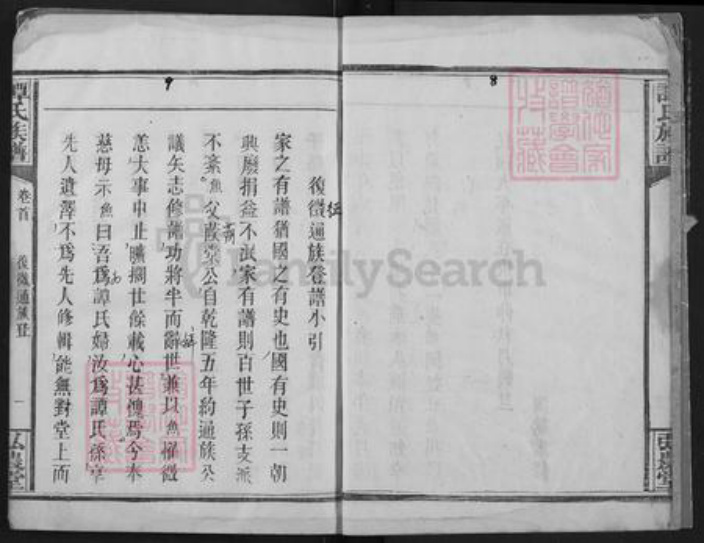 8
9
復徵通族登譜小引
征
家之有譜猶國之有史也國有史則一朝
興廢損益不泯家有譜則百世子孫支派
不紊魚父霞棠公自乾隆五年約通族公
議矢志修譜功將半而辭世兼以魚罹微
恙大事中止曠擱世餘載心甚愧焉今奉
慈母示魚曰吾為譚氏婦汝為譚氏孫享
先人遺澤不為先人修輯能無對堂上而
譚氏族譜
卷首
復徵通族登
一
弘農堂
譚氏族譜
弘農堂
FamilySearch